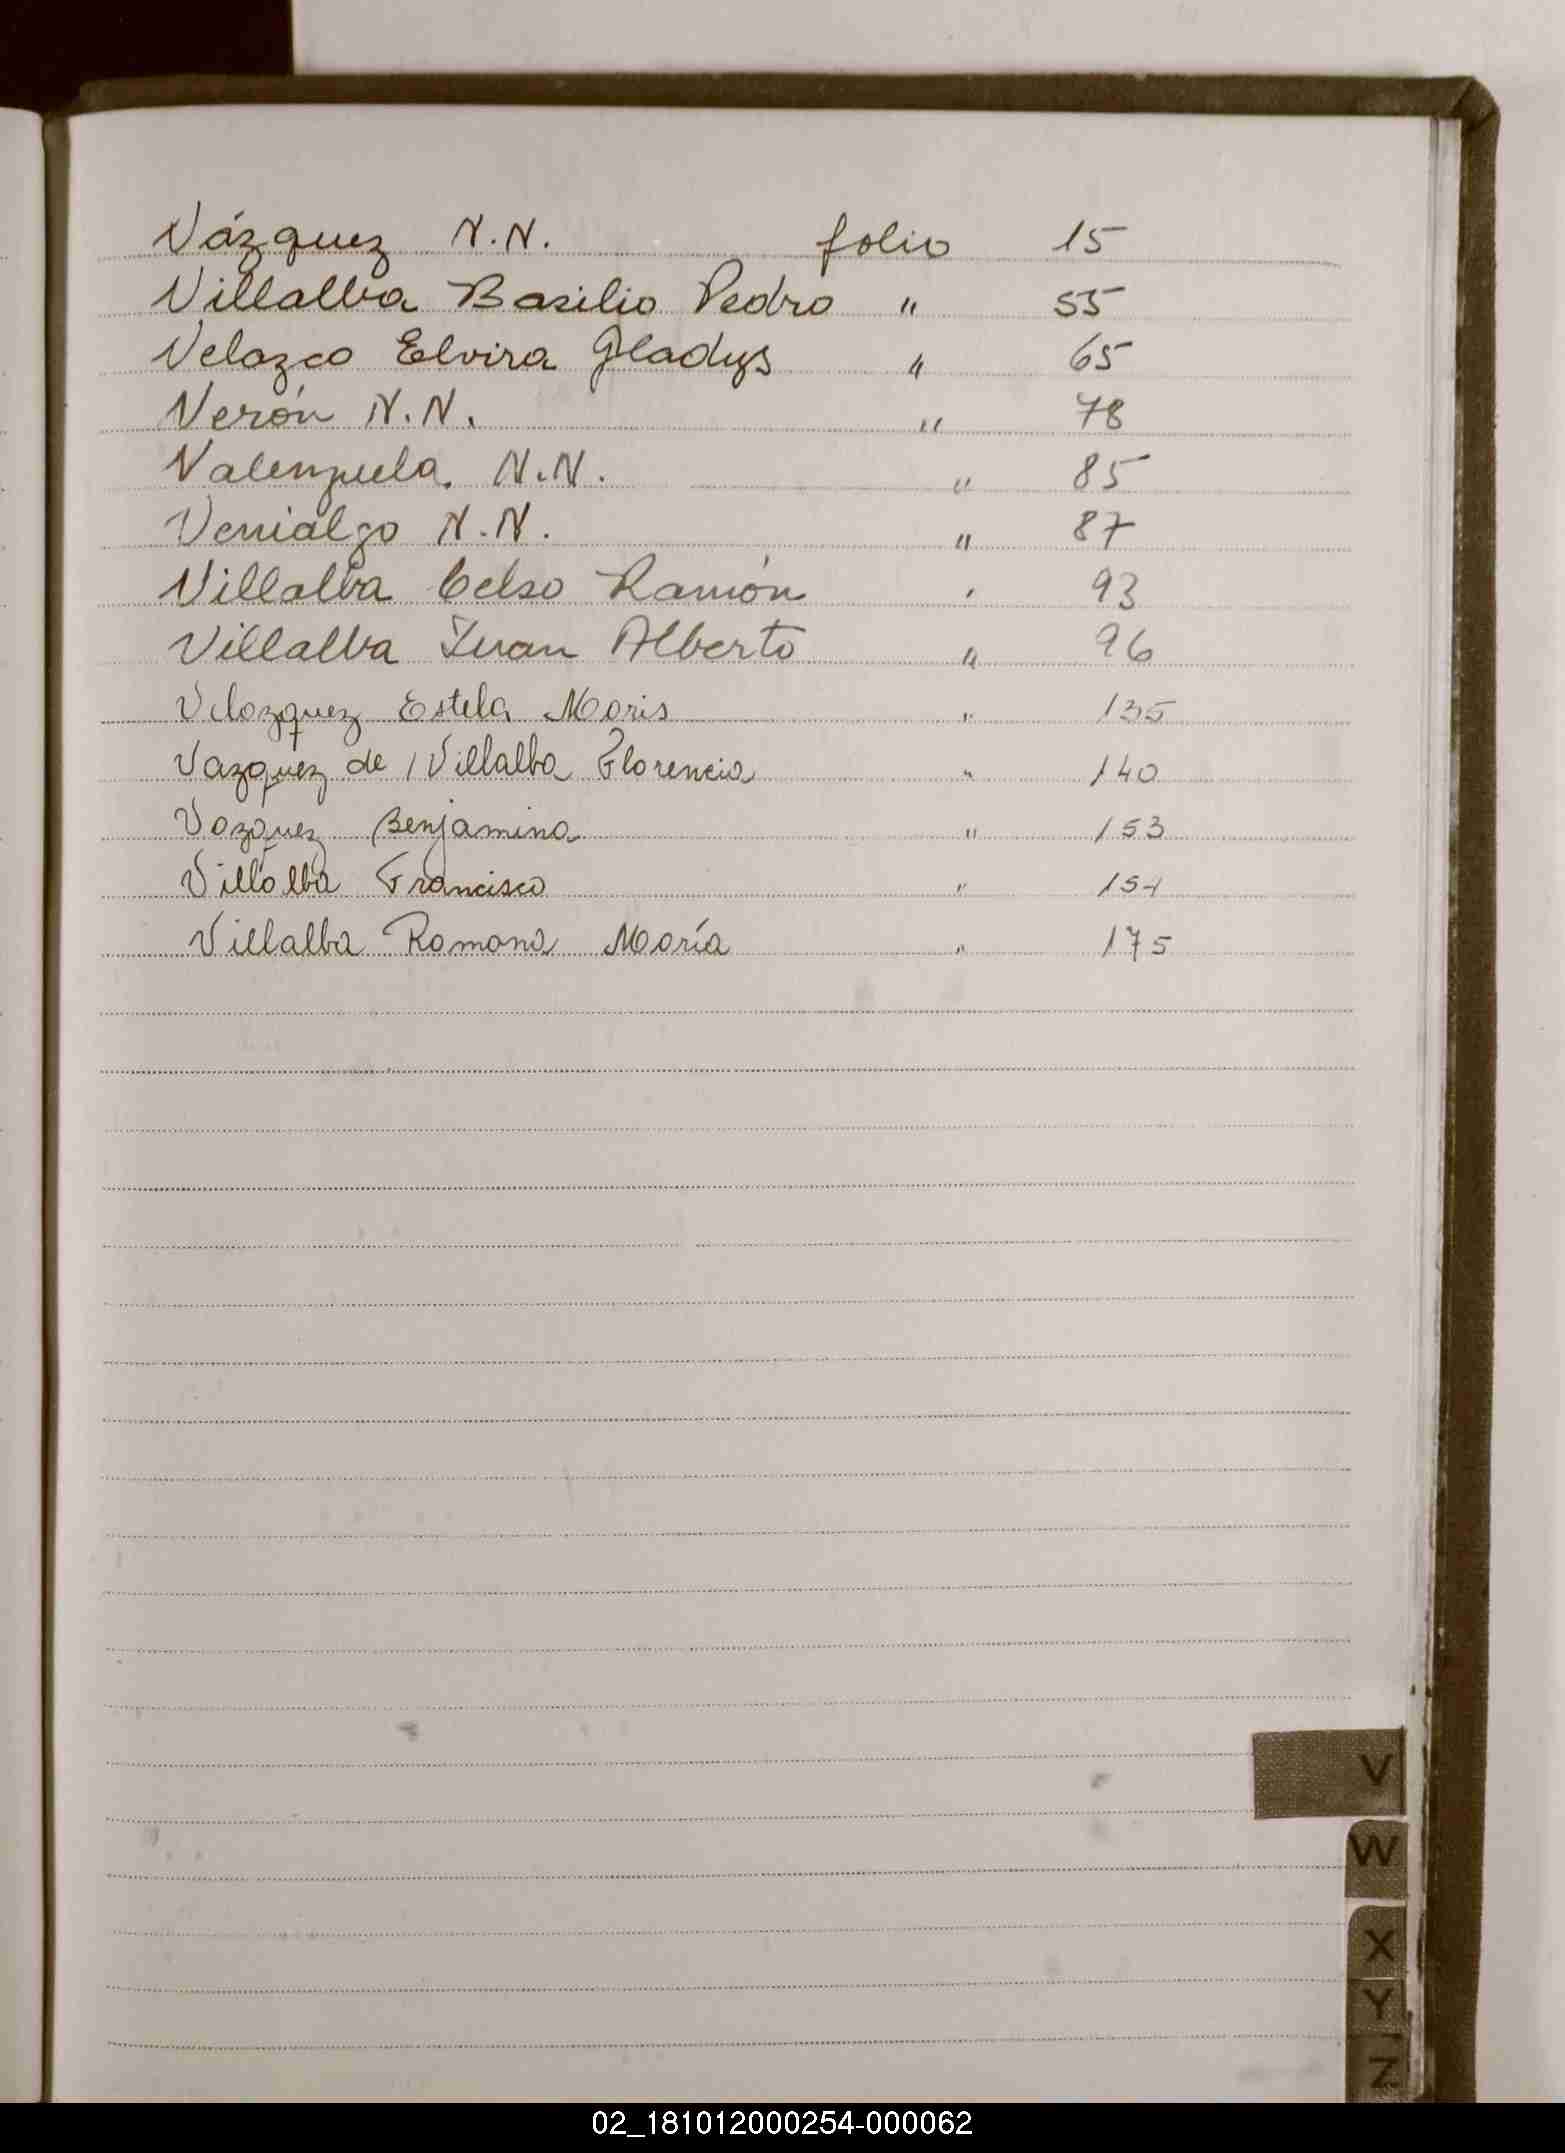 Vázquez N.N. folio 15
Villalba Basilio Pedro " 55
Velazco Elvira Gladys " 65
Verón N.N. " 78
Valenzuela. N.N. " 85
Venialgo N.N. " 87
Villalba Celso Ramón " 93
Villalba Juan Alberto " 96
Velazquez Estela Maris " 135
Vazquez de Villalba Florencia " 140
Vazquez Benjamina " 153
Villalba Francisco " 154
Villalba Romana María " 175
V
W
X
Y
Z
02_181012000254-000062